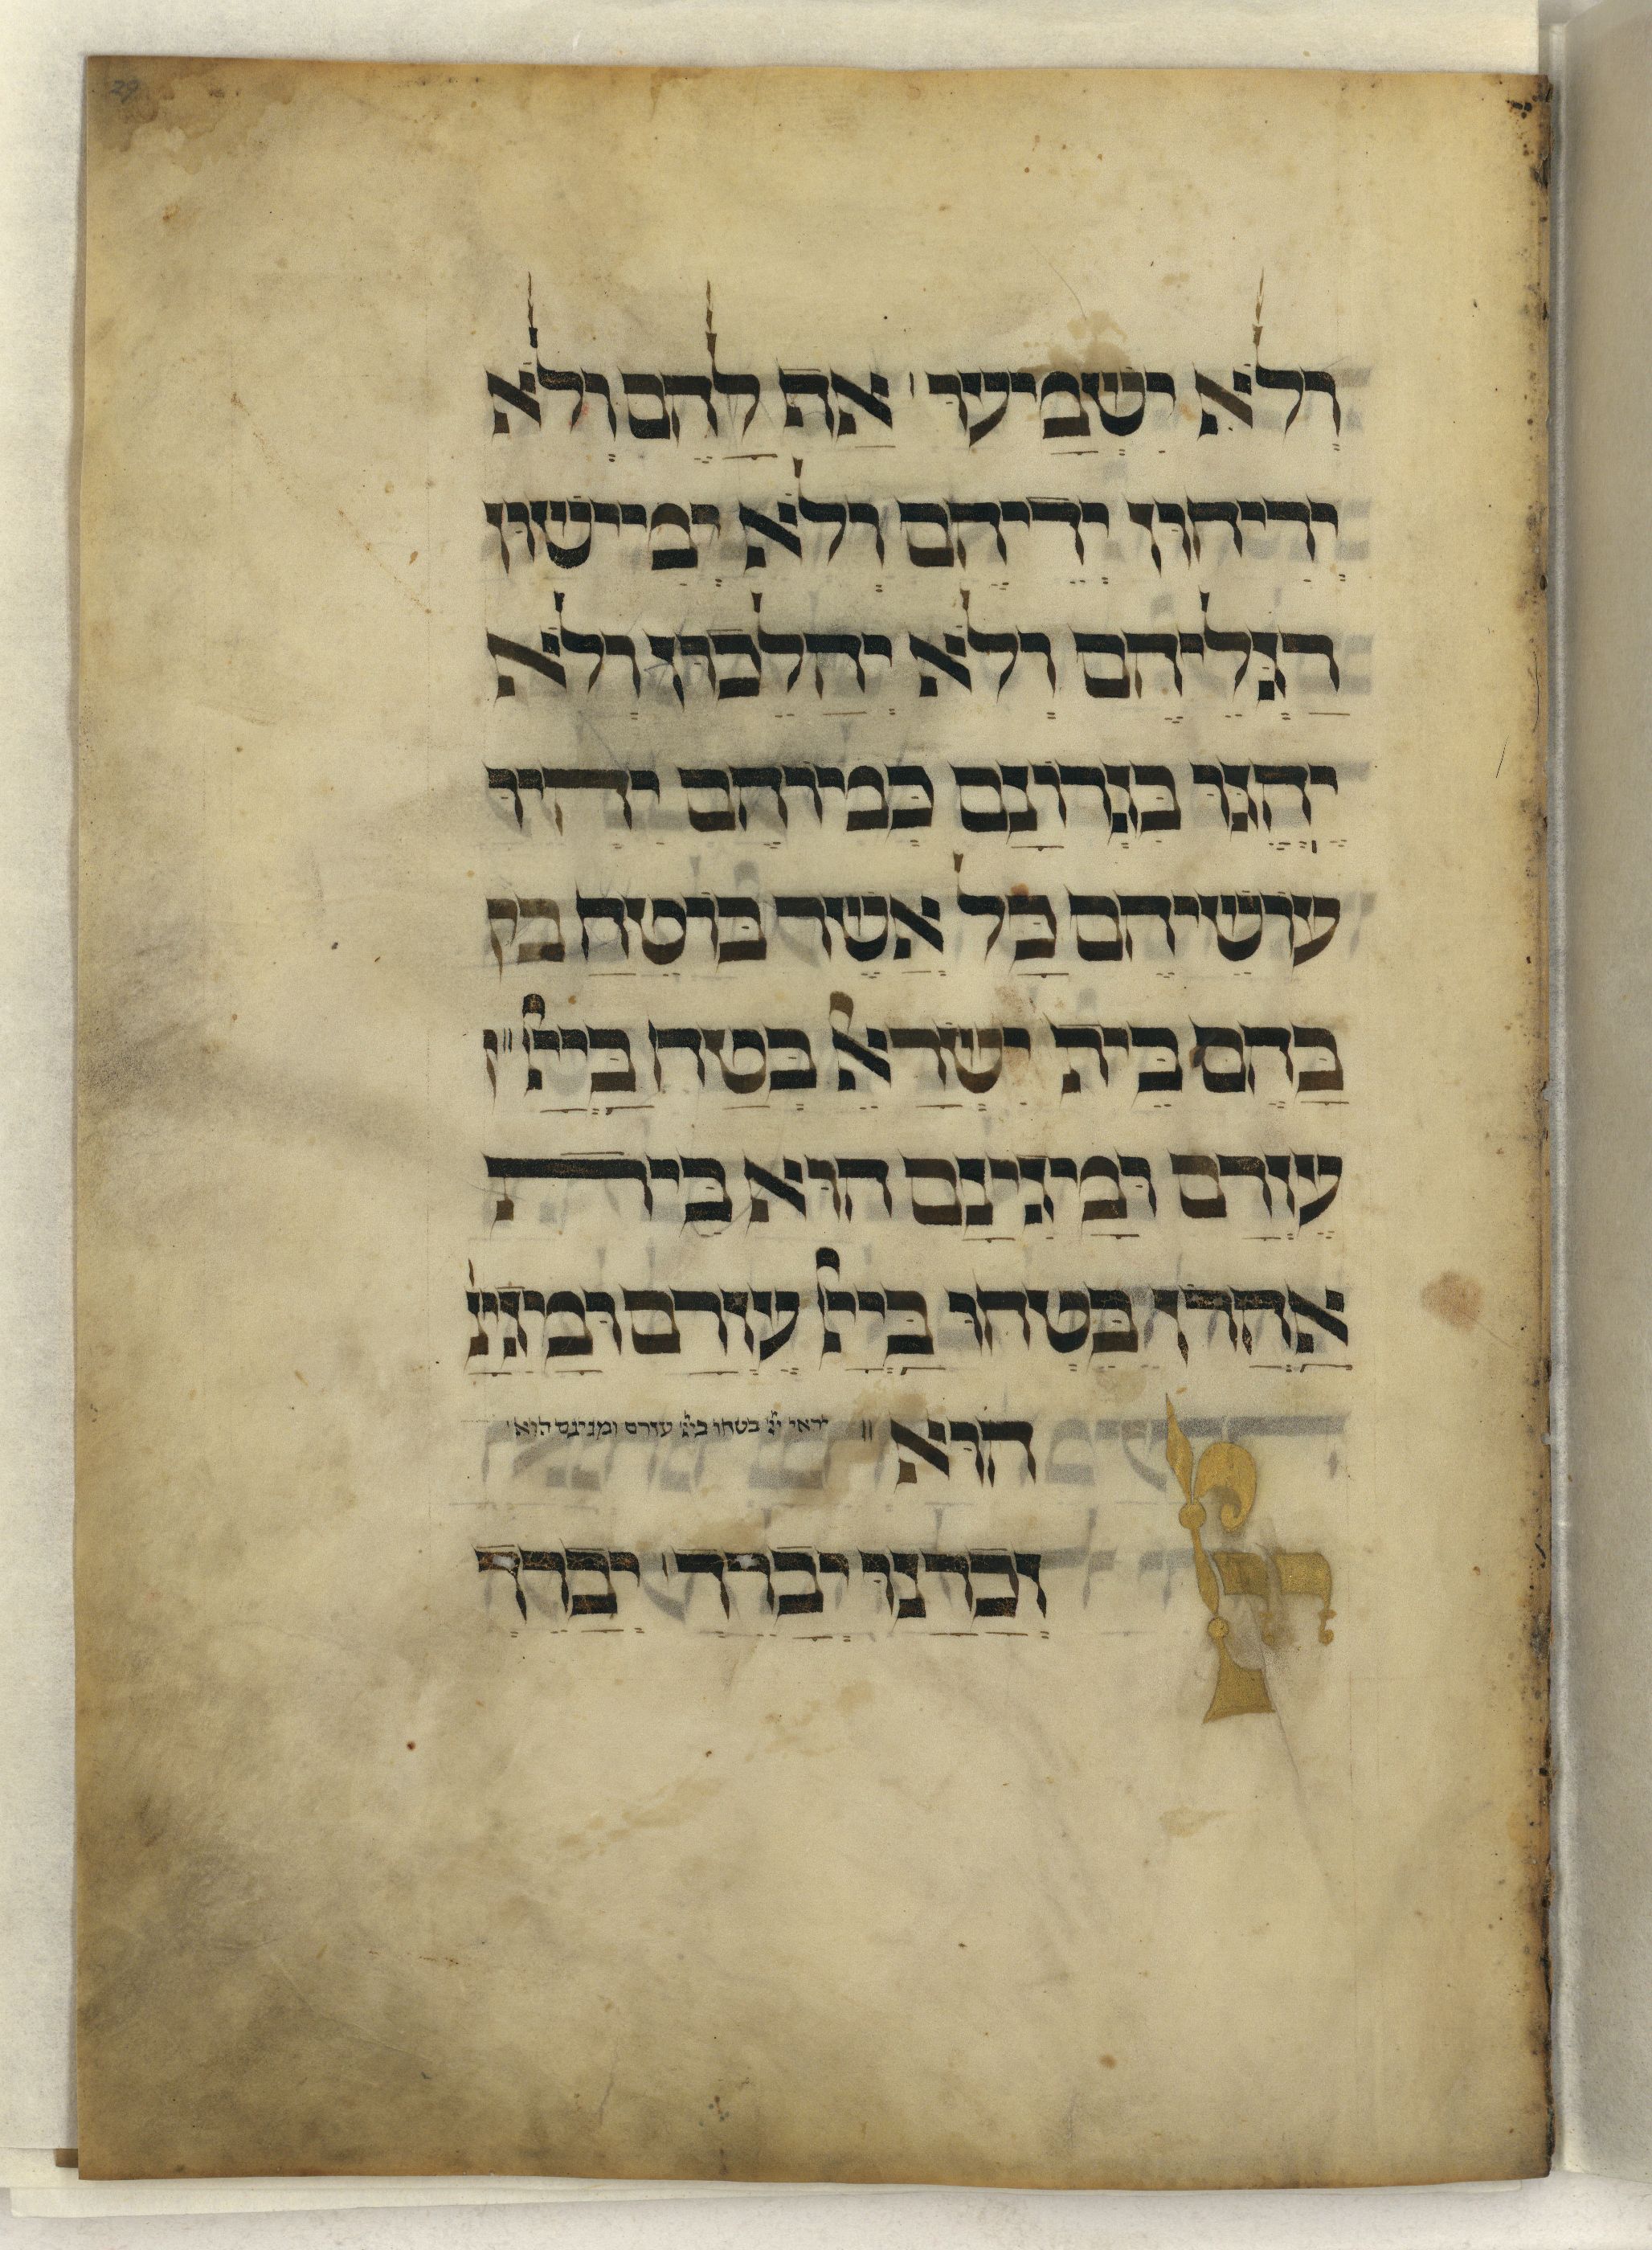 וְלֹא יִשְׁמָעוּ׳ אַף לָהֶם וְלֹא
יְרִיחוּן יְדֵיהֶם וְלֹא יְמִישׁוּן
רַגְלֵיהֶם וְלֹא יְהַלֵּכוּן וְלֹא
יֶהְגּוּ בִּגְרוֹנָם כְּמוֹהֶם יִהְיוּ
עוֹשֵׂיהֶם כָּל אֲשֶׁר בּוֹטֵחַ בק
בָּהֶם בֵּית יִשְׂרָאֵל בְּטַח בַּיְיָ׳׳
עֶזְרָם וּמָגִינָם הוּא בֵּית
אַהֲרֹן בִּטְחוּ בַּיְיָ עֶזְרָם וּמָגִינָ
הוּא ׳׳ יראי יי׳ בטחו ביי׳ עזרם ומגינם הוא׳
יי׳ זְכָרָנוּ יְבָרֵךְ׳ יְבָרֵךְ